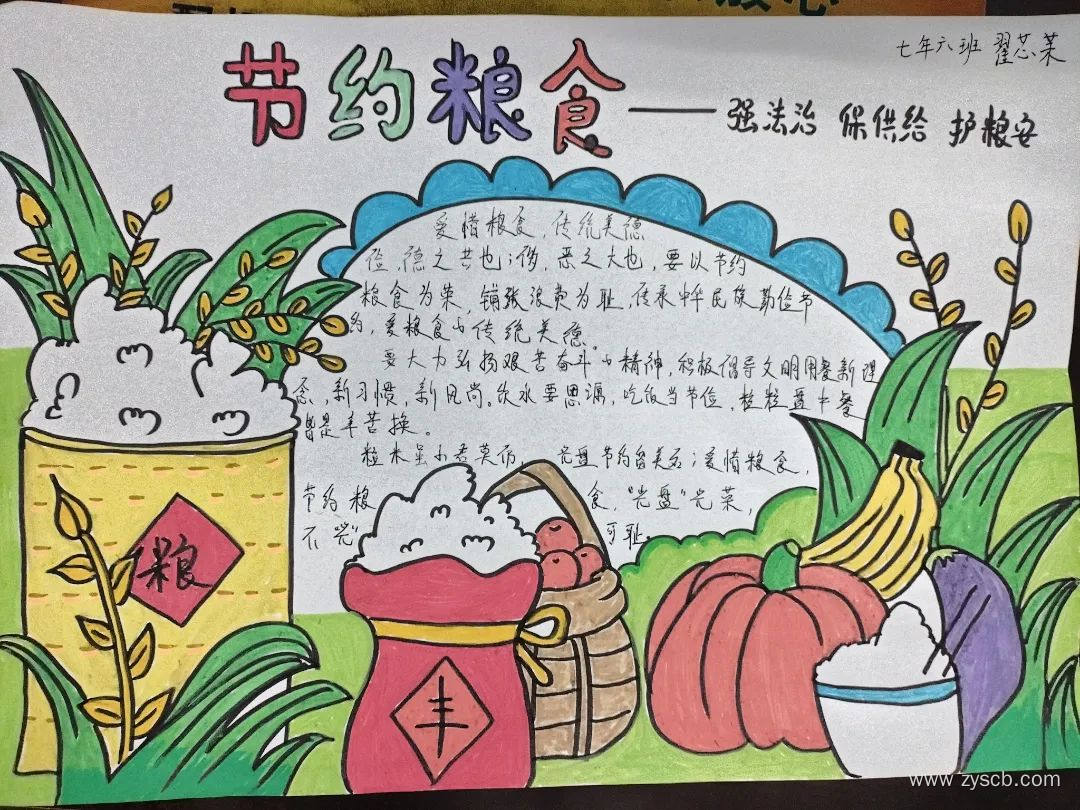 七年六班 翟芯茉
节约粮食——强法治 保供给 护粮安
爱惜粮食，传统美德
俭，德之共也；侈，恶之大也，要以节约
粮食为荣，铺张浪费为耻，传承中华民族勤俭节
约，爱粮食的传统美德。
要大力弘扬艰苦奋斗的精神，积极倡导文明用餐新理
念，新习惯，新风尚。饮水要思源，吃饭当节位，粒粒盘中餐
皆是辛苦换。
粒米虽小君莫扔 光盘节约留美名；爱惜粮食，
节约粮 食，“光盘”光荣，
不“光” 可耻。
粮
丰
www.zyscb.com